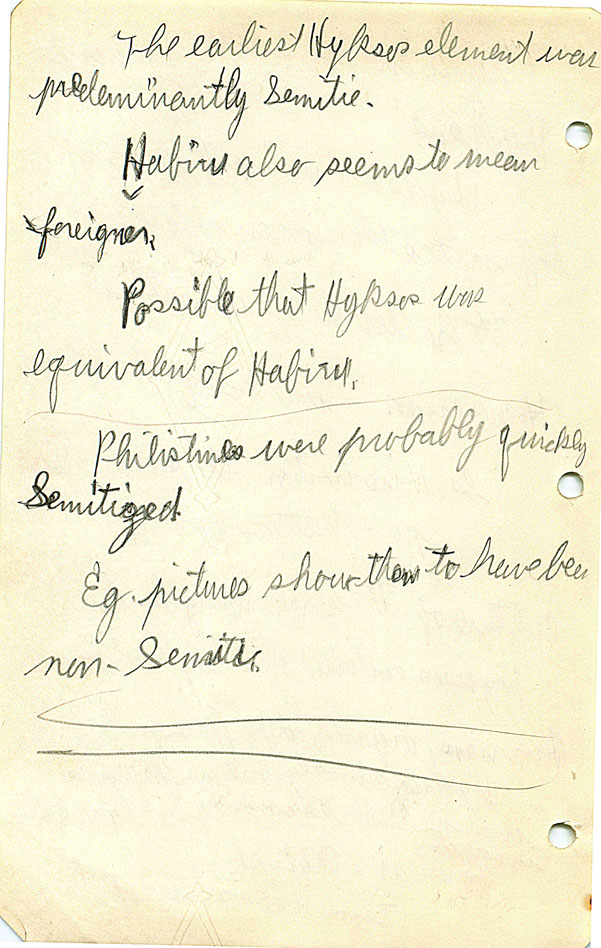 The earliest Hyksos element was
predeminantly Semitic.
Habiru also seems to mean
foreigner.
Possible that Hyksos was
equivalent of Habiru.
Philistines were probably quickly
Semitized.
Eg. pictures show them to have been
non-Semitic.